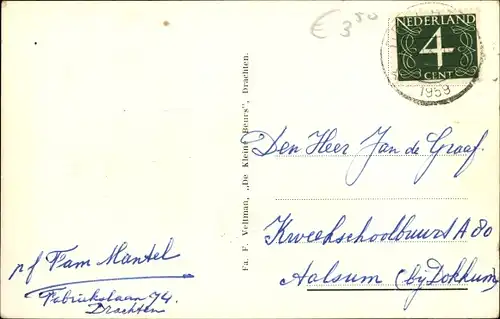 € 3⁵⁰
NEDERLAND
4
CENT
1959
Fa. F. Veltman, „De Kleine Beurs", Drachten.
Den Heer Jan de Graaf.
Kweekschoolbuurt A 80
Aalsum (bij Dokkum)
pf Fam Mantel
Fabriekslaan 74.
Drachten